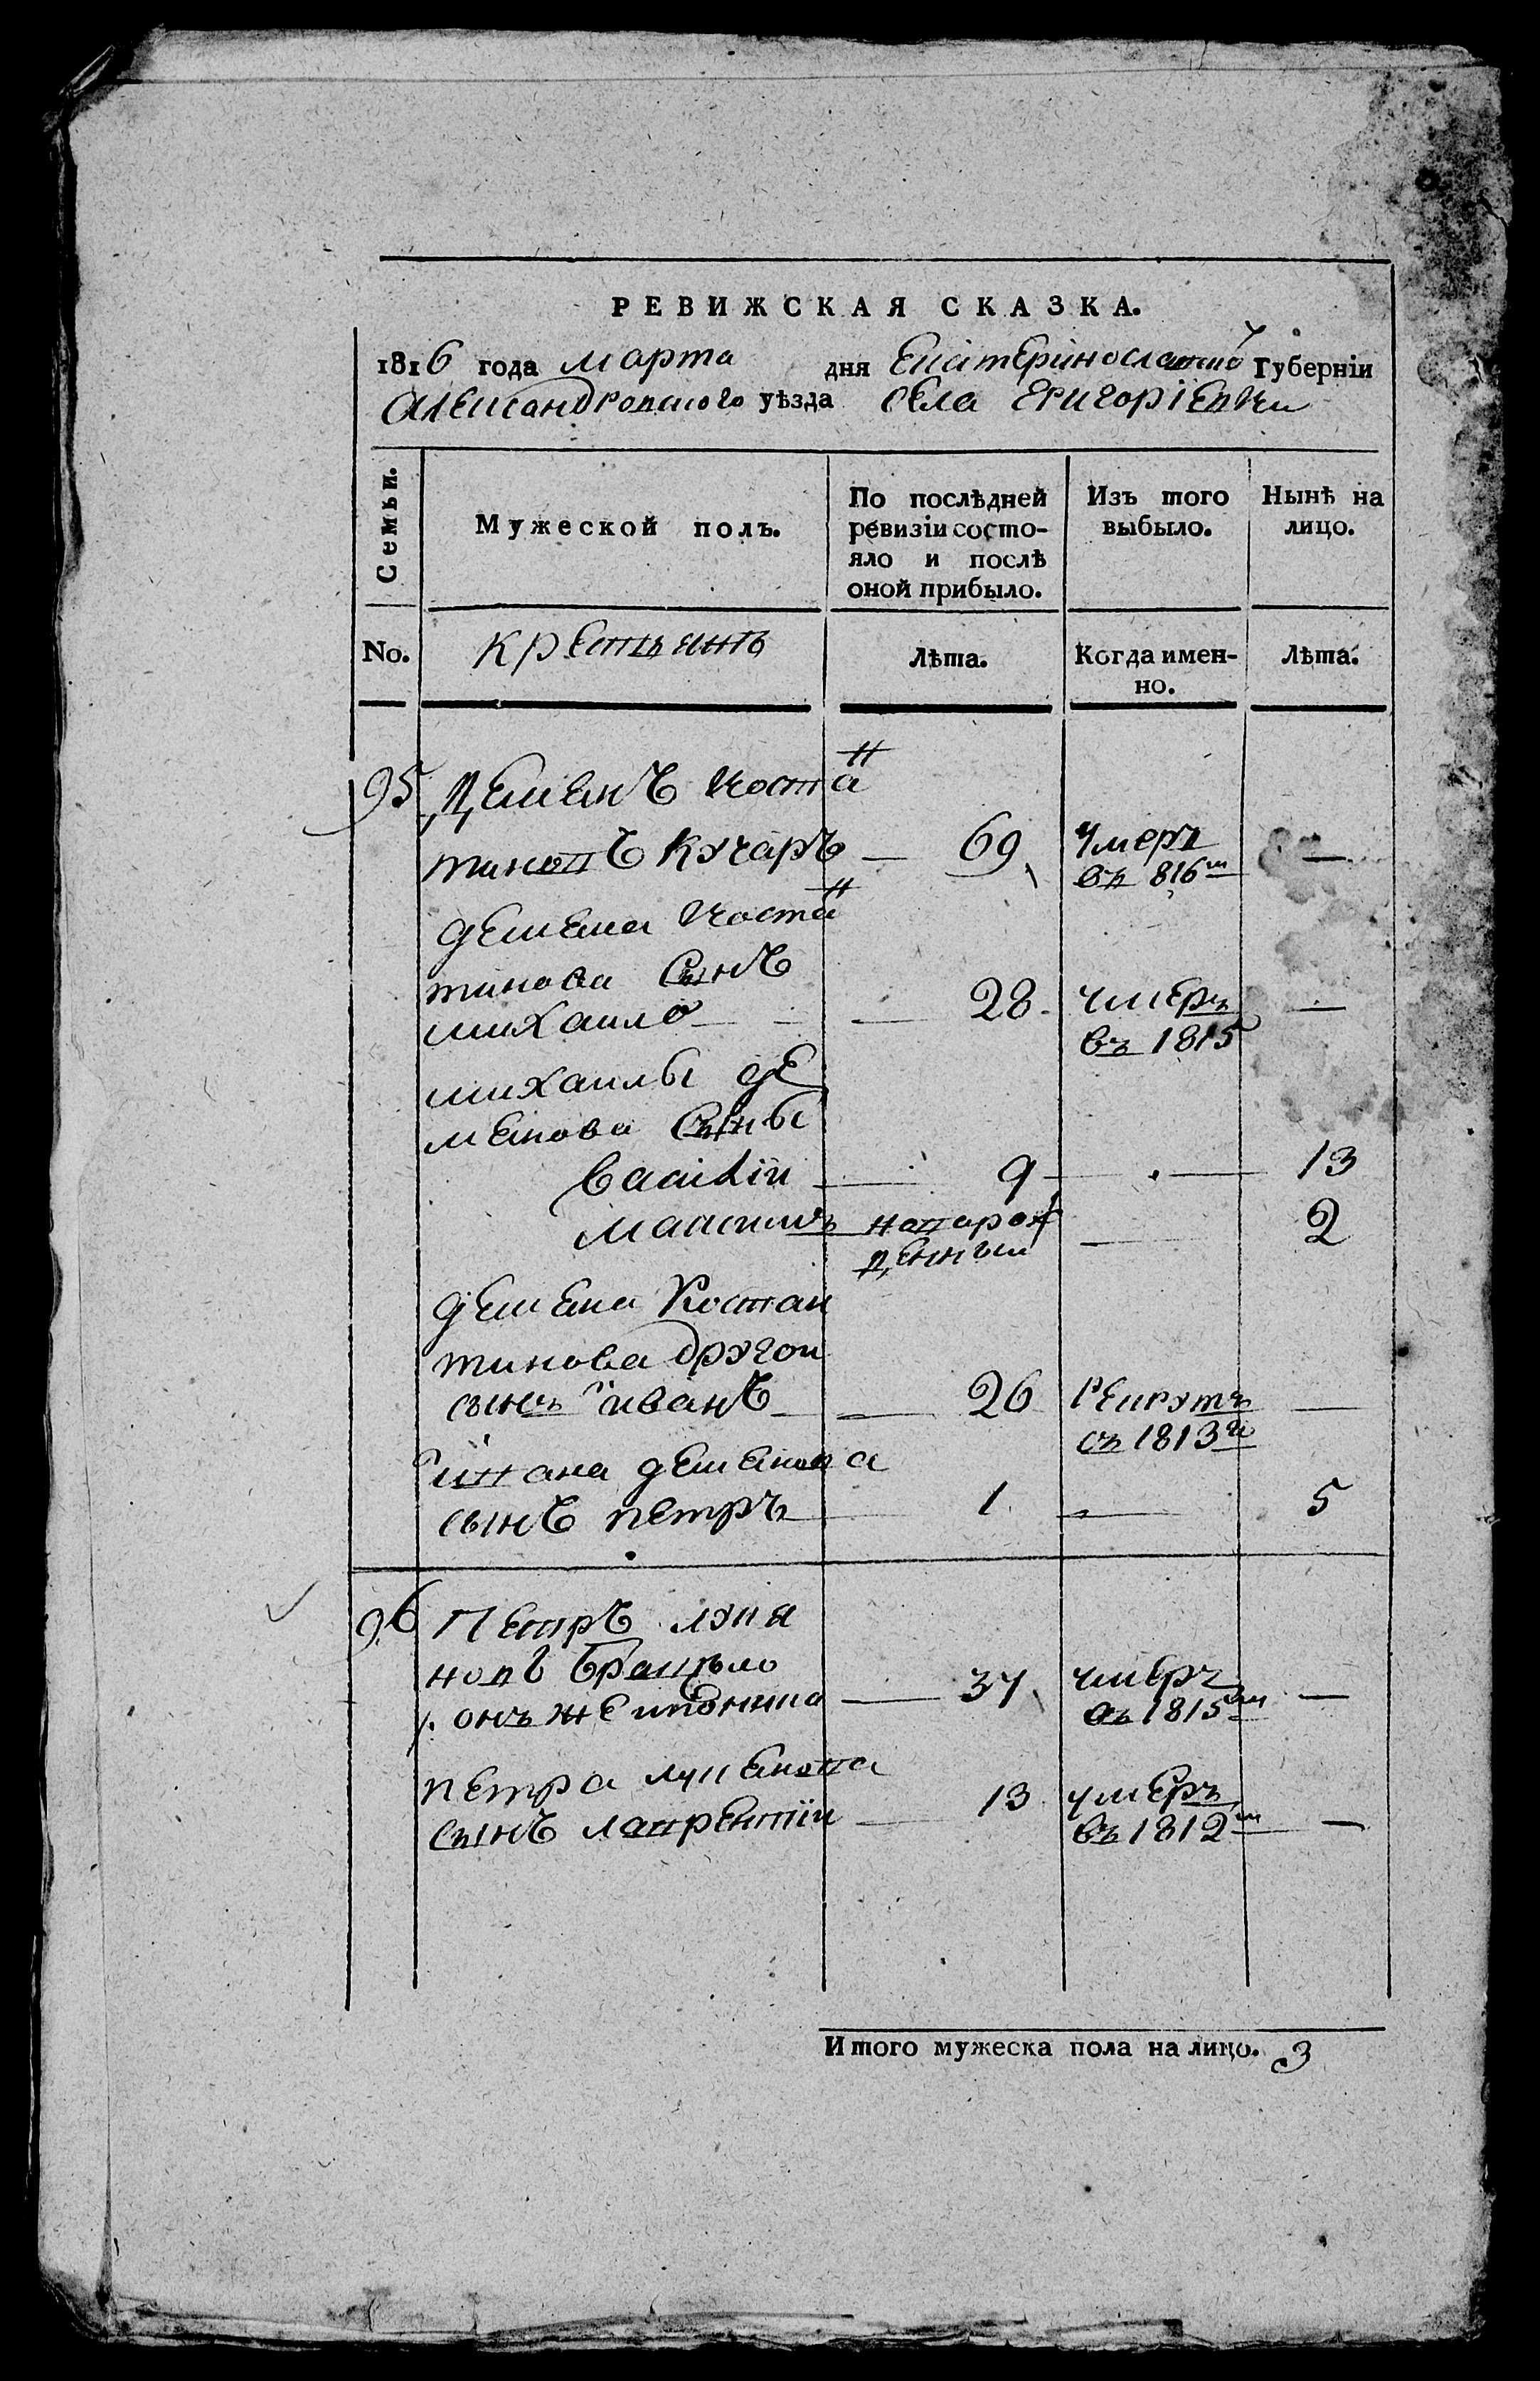 РЕВИЖСКАЯ СКАЗКА.
1816 года марта дня Екатеринославской Губерніи
Александровскаго уѣзда села Григоріевки
Семьи.
Мужеской полъ.
По послѣдней ревизіи состояло и послѣ оной прибыло.
Изъ того выбыло.
Нынѣ на лицо.
No.
Лѣта.
Когда именно.
Лѣта.
95 Деменъ Коста н
тиновъ Кухаръ — 69 умеръ въ 816м —
демена Коста н
тинова Сынъ
михаило — 28 умеръ въ 1815 —
михаилы де
менова Сыны
Василіи — 9 — 13
Максимъ новорожденныи — 2
демена Костан
тинова другои
сынъ иванъ — 26 рекрутъ съ 1813го —
ивана деменова
сынъ петръ — 1 — 5
96 Петръ лукя
новъ
онъ же — 37 умеръ въ 1815м —
петра лукянова
сынъ лаврентіи — 13 умеръ въ 1812м —
Итого мужеска пола на лицо. 3